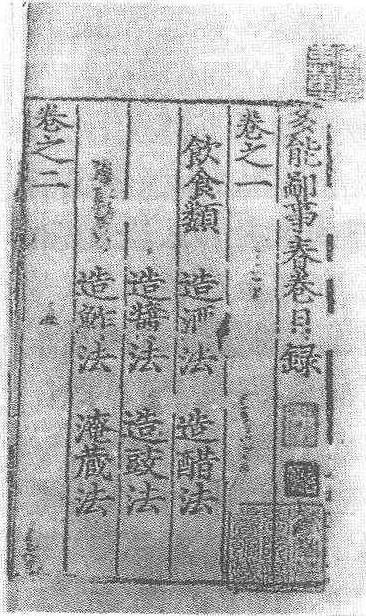 多能鄙事春卷目錄
卷之一
飲食類 造酒法 造醋法
造醬法 造豉法
造鮓法 淹藏法
卷之二